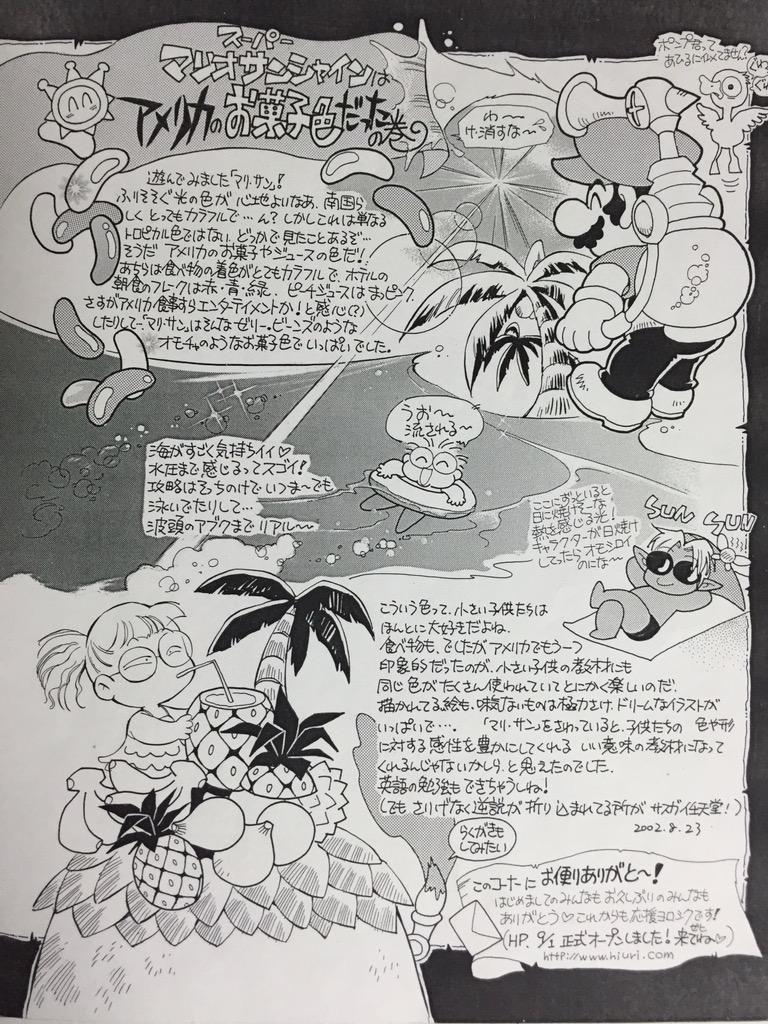 スーパー
マリオサンシャインは
アメリカのお菓子色だったの巻
ポンプ背って
あひるに似てません?
わ〜
け、消すな〜
遊んでみました「マリ・サン」!
ふりそそぐ光の色が心地よいなあ、南国ら
しくとってもカラフルで…ん?しかしこれは単なる
トロピカル色ではない、どっかで見たことあるぞ…
そうだ アメリカのお菓子やジュースの色だ!
あちらは食べ物の着色がとてもカラフルで、ホテルの
朝食のフレークは赤・青・緑、ピーチジュースはまっピンク。
さすがアメリカ食事すらエンターテイメントか!と感心(?)
したりして…「マリ・サン」はそんなゼリー・ビーンズのような
オモチャのようなお菓子色でいっぱいでした。
うお〜
流される〜
海がすごく気持ちイイ♡
水圧まで感じるってスゴイ!
攻略はそっちのけでいつま〜でも
泳いでたりして…
波頭のアブクまでリアル〜
ここにずっといると
日に焼けそ〜な
熱を感じる光!
キャラクターが日焼け
してったらオモシロイ
のにな〜
SUN SUN
こういう色って、小さい子供たちは
ほんとに大好きだよね、
食べ物も。でしたがアメリカでもう一つ
印象的だったのが、小さい子供の教材にも
同じ色がたくさん使われていてとにかく楽しいのだ。
描かれてる絵も、味気ないものは極力さけ、ドリームなイラストが
いっぱいで…。「マリ・サン」をさわっていると、子供たちの 色や形
に対する感性を豊かにしてくれる いい意味の教材になって
くれるんじゃないかしら、と思えたのでした。
英語の勉強もできちゃうしね!
(でも さりげなく逆説が折り込まれてる所が サスガ任天堂!)
2002.8.23
らくがきも
してみたい
このコーナーにお便りありがと〜!
はじめましてのみんなもお久しぶりのみんなも
ありがとう♡これからも応援ヨロシクです!
(HP、9/1 正式オープンしました!来てね♡)
http://www.hiuri.com